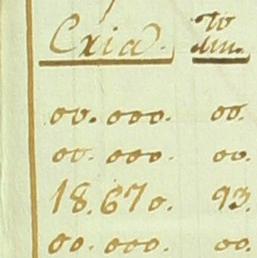 Cxia.
00.000. 00.
00.000. 00.
18.670. 93.
00.000. 00.